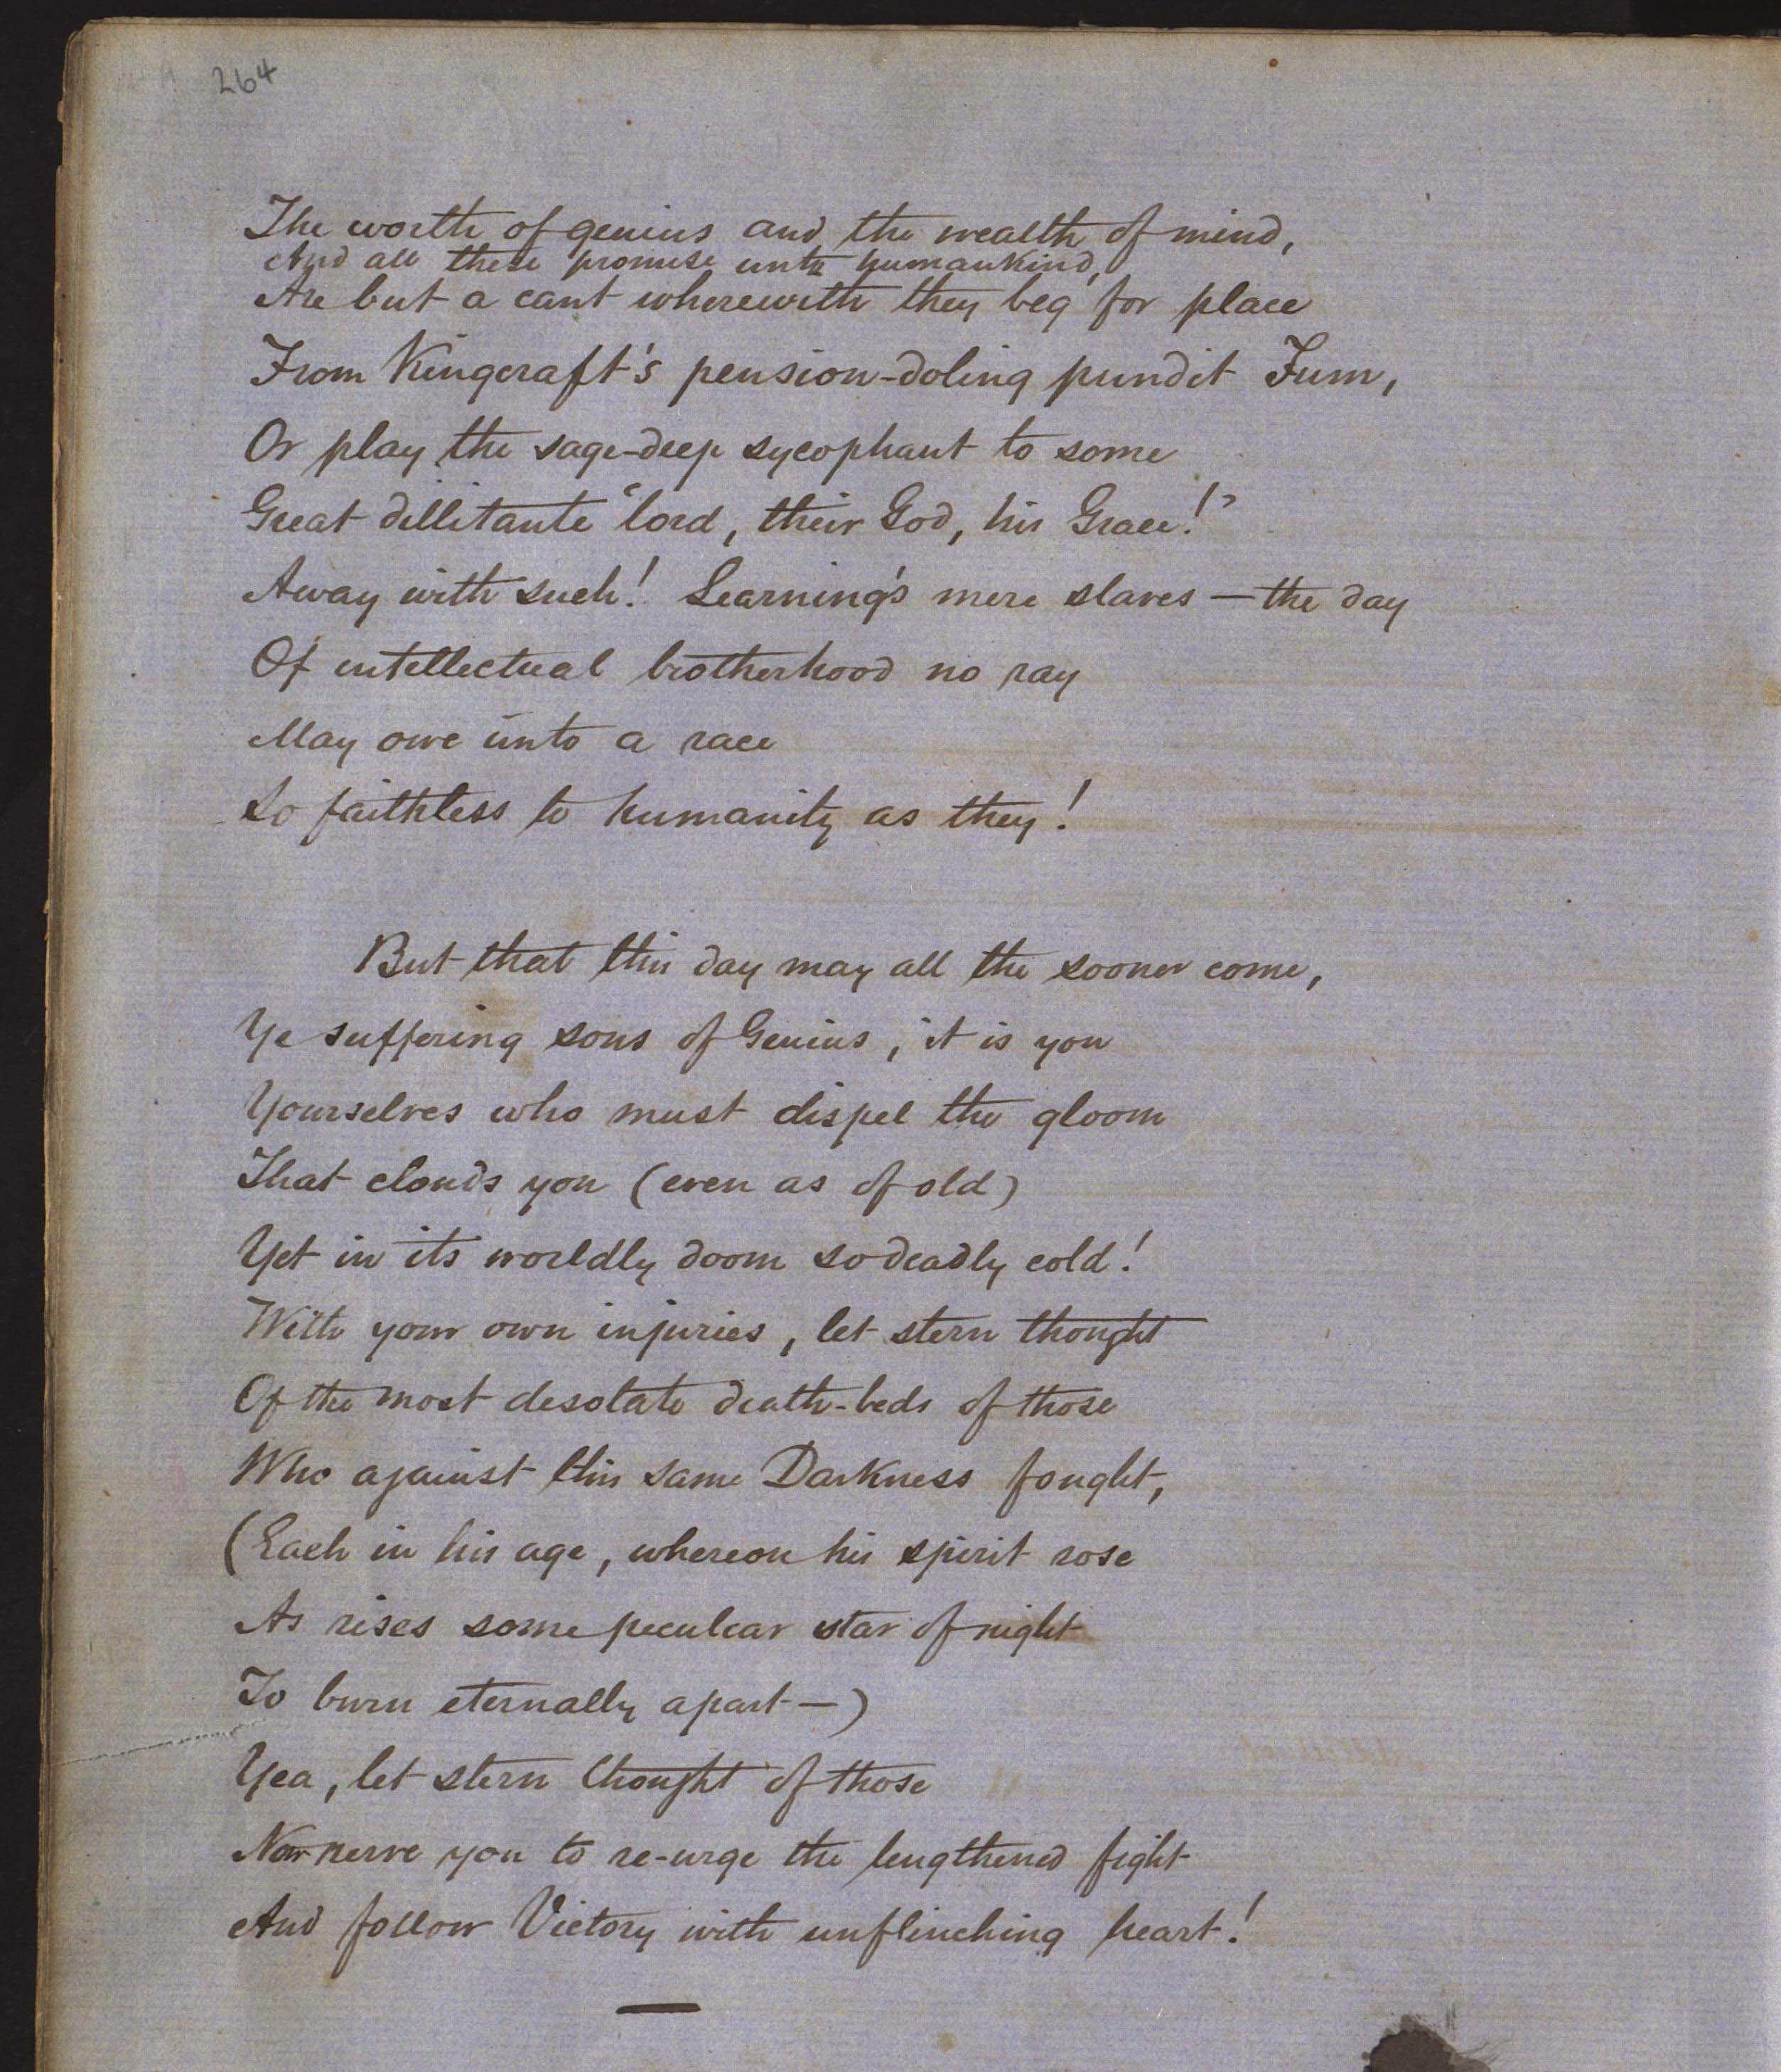 264
The worth of genius and the wealth of mind,
And all these promise unto humankind,
Are but a cant wherewith they beg for place
From Kingcraft's pension-doling pundit Fum,
Or play the sage-deep sycophant to some
Great dillitante "lord, their God, his Grace!"
Away with such! Learning's mere slaves — the day
Of intellectual brotherhood no ray
May owe unto a race
So faithless to humanity as they!
But that this day may all the sooner come,
Ye suffering sons of Genius, it is you
Yourselves who must dispel the gloom
That clouds you (even as of old)
Yet in its worldly doom so deadly cold!
With your own injuries, let stern thought
Of the most desolate death-beds of those
Who against this same Darkness fought,
(Each in his age, whereon his spirit rose
As rises some peculiar star of night
To burn eternally apart —)
Yea, let stern thought of those
Now nerve you to re-urge the lengthened fight
And follow Victory with unflinching heart!